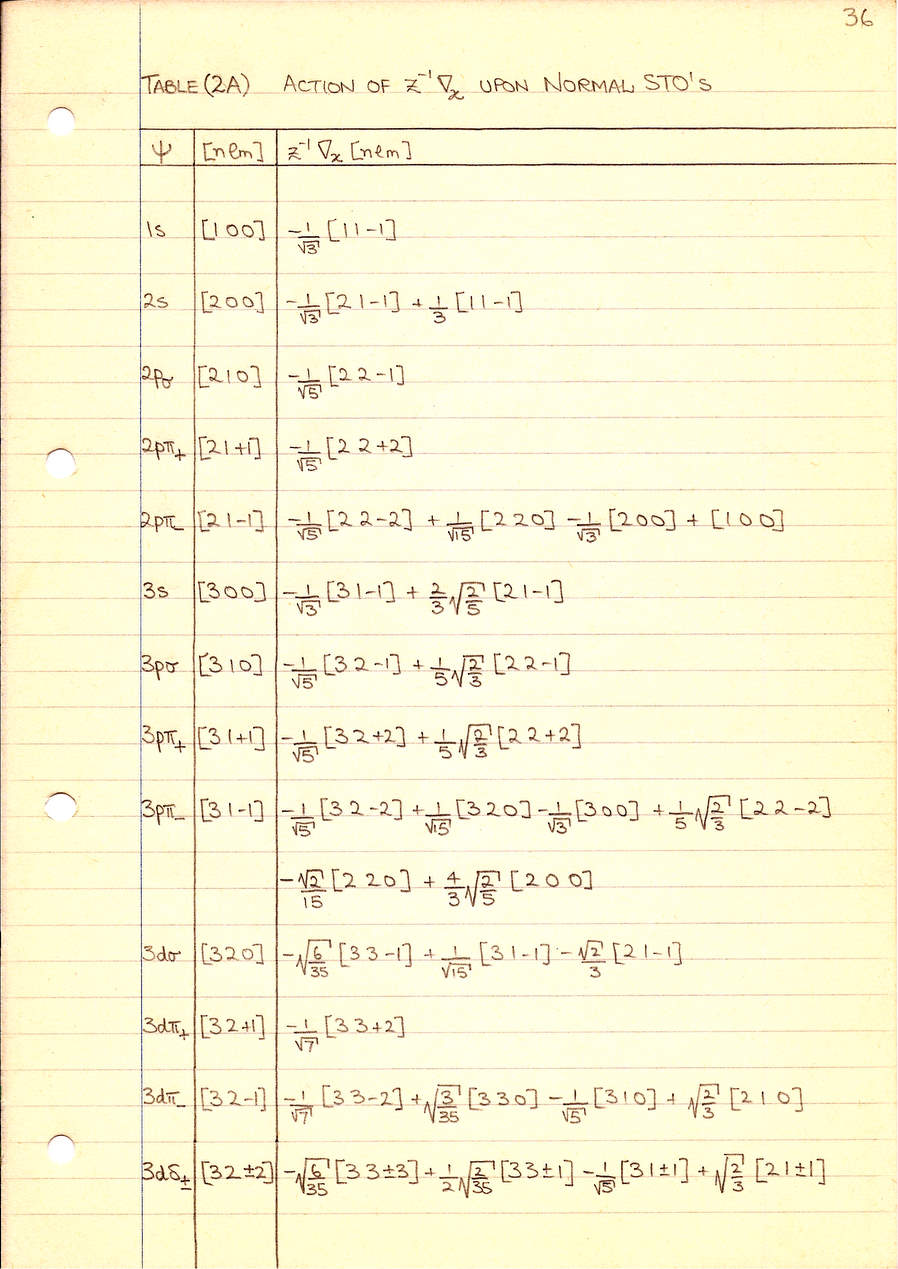 36
TABLE (2A) ACTION OF Z⁻¹∇ₓ UPON NORMAL STO'S
Ψ [nlm] Z⁻¹∇ₓ[nlm]
1s [100] -1/√3 [11-1]
2s [200] -1/√3 [21-1] + 1/3 [11-1]
2pσ [210] -1/√5 [22-1]
2pπ₊ [21+1] -1/√5 [22+2]
2pπ₋ [21-1] -1/√5 [22-2] + 1/√15 [220] -1/√3 [200] + [100]
3s [300] -1/√3 [31-1] + 2/3 √(2/5) [21-1]
3pσ [310] -1/√5 [32-1] + 1/5 √(2/3) [22-1]
3pπ₊ [31+1] -1/√5 [32+2] + 1/5 √(2/3) [22+2]
3pπ₋ [31-1] -1/√5 [32-2] + 1/√15 [320] - 1/√3 [300] + 1/5 √(2/3) [22-2]
-√2/15 [220] + 4/3 √(2/5) [200]
3dσ [320] -√(6/35) [33-1] + 1/√15 [31-1] - √2/3 [21-1]
3dπ₊ [32+1] -1/√7 [33+2]
3dπ₋ [32-1] -1/√7 [33-2] + √(3/35) [330] - 1/√5 [310] + √(2/3) [210]
3dδ± [32±2] -√(6/35) [33±3] + 1/2 √(2/35) [33±1] - 1/√5 [31±1] + √(2/3) [21±1]